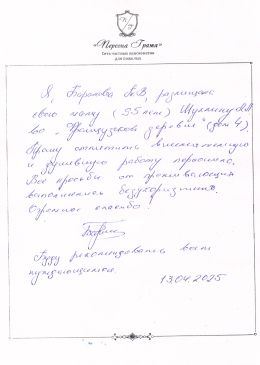 П/Г
«Персона Грата»
Сеть частных пансионатов
для пожилых
Я, Баранова А.В, разместила
свою маму (95 лет) Шулкину М.М
во "Французской деревне" (дом 4).
Хочу отметить внимательную
и душевную работу персонала.
Все просьбы от проживающих
выполняются безукоризненно.
Огромное спасибо!
Буду рекомендовать всем
нуждающимся.
13.04.2025